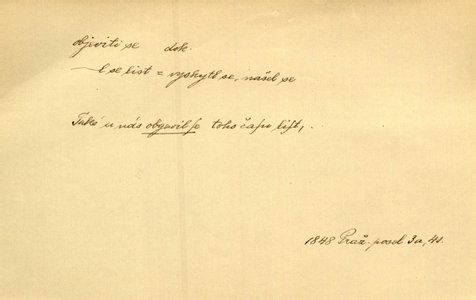 objeviti se dok.
–l se list = vyskytl se, našel se
Také u nás obgewil se toho časy list,
1848 Praž. posel 3a, 41.